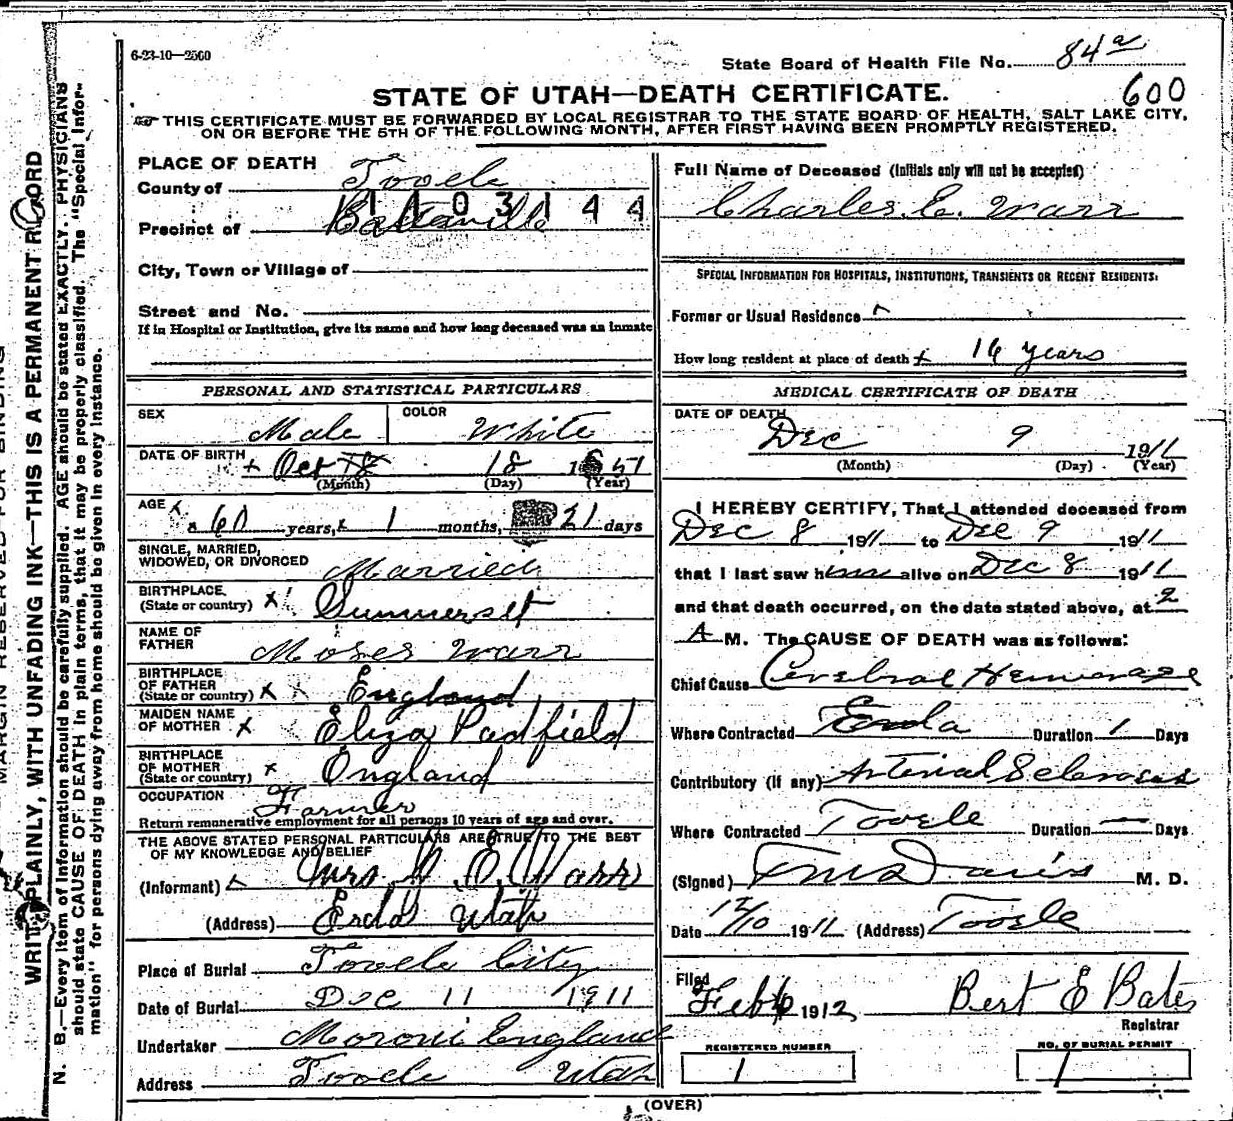 6-23-10—2500
State Board of Health File No. 84a
600
STATE OF UTAH—DEATH CERTIFICATE.
THIS CERTIFICATE MUST BE FORWARDED BY LOCAL REGISTRAR TO THE STATE BOARD OF HEALTH, SALT LAKE CITY,
ON OR BEFORE THE 5TH OF THE FOLLOWING MONTH, AFTER FIRST HAVING BEEN PROMPTLY REGISTERED.
PLACE OF DEATH
County of Tooele
1103144
Precinct of Batesville
City, Town or Village of
Street and No.
If in Hospital or Institution, give its name and how long deceased was an inmate
Full Name of Deceased (Initials only will not be accepted)
Charles E. Warr
SPECIAL INFORMATION FOR HOSPITALS, INSTITUTIONS, TRANSIENTS OR RECENT RESIDENTS:
Former or Usual Residence
How long resident at place of death x 16 years
PERSONAL AND STATISTICAL PARTICULARS
SEX Male
COLOR White
DATE OF BIRTH + Oct 18 1851
(Month) (Day) (Year)
AGE x 60 years, x 1 months, 21 days
SINGLE, MARRIED,
WIDOWED, OR DIVORCED Married
BIRTHPLACE
(State or country) x Summerset
NAME OF
FATHER Moses Warr
BIRTHPLACE
OF FATHER
(State or country) x x England
MAIDEN NAME
OF MOTHER x Eliza Padfield
BIRTHPLACE
OF MOTHER
(State or country) x England
OCCUPATION Farmer
Return remunerative employment for all persons 10 years of age and over.
THE ABOVE STATED PERSONAL PARTICULARS ARE TRUE TO THE BEST
OF MY KNOWLEDGE AND BELIEF
(Informant) Mrs. E. Warr
(Address) Erda Utah
Place of Burial Tooele City
Date of Burial Dec 11 1911
Undertaker Moroni England
Address Tooele Utah
MEDICAL CERTIFICATE OF DEATH
DATE OF DEATH
Dec 9 1911
(Month) (Day) (Year)
I HEREBY CERTIFY, That I attended deceased from
Dec 8 1911 to Dec 9 1911
that I last saw him alive on Dec 8 1911
and that death occurred, on the date stated above, at 2
A M. The CAUSE OF DEATH was as follows:
Chief Cause Cerebral Hemorage
Where Contracted Erda Duration 1 Days
Contributory (if any) Arterial Sclerosis
Where Contracted Tooele Duration — Days
(Signed) Davis M. D.
Date 12/10 1911 (Address) Tooele
Filed
Feb 1912 Bert E Bates
Registrar
REGISTERED NUMBER
1
NO. OF BURIAL PERMIT
1
(OVER)
MARGIN RESERVED FOR BINDING
WRITE PLAINLY, WITH UNFADING INK—THIS IS A PERMANENT RECORD
N. B.—Every item of information should be carefully supplied. AGE should be stated EXACTLY. PHYSICIANS
should state CAUSE OF DEATH in plain terms, that it may be properly classified. The "Special Infor-
mation" for persons dying away from home should be given in every instance.